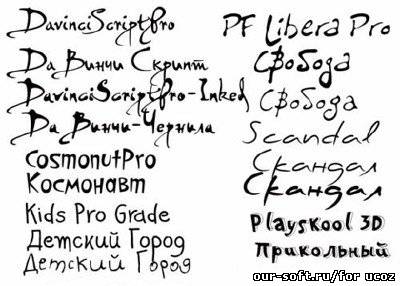 DavinciScriptPro
Да Винчи Скрипт
DavinciScriptPro-Inked
Да Винчи-Чернила
CosmonutPro
Космонавт
Kids Pro Grade
Детский Город
Детский Город
PF Libera Pro
Свобода
Свобода
Scandal
Скандал
Скандал
Playskool 3D
Прикольный
our-soft.ru/for ucoz